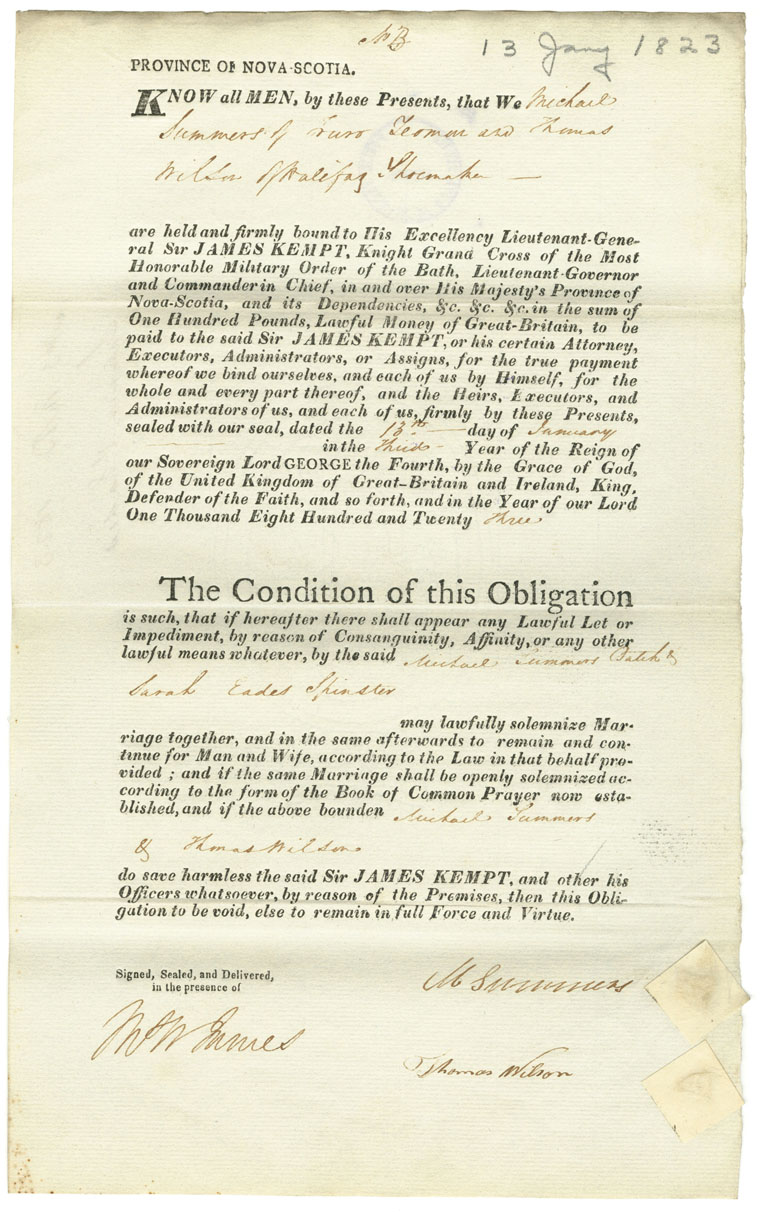 13 Jany 1823
PROVINCE OF NOVA-SCOTIA.
KNOW all MEN, by these Presents, that We Michael
Summers of Truro Yeoman and Thomas
Wilson of Halifax Shoemaker —
are held and firmly bound to His Excellency Lieutenant-Gene-
ral Sir JAMES KEMPT, Knight Grand Cross of the Most
Honorable Military Order of the Bath, Lieutenant-Governor
and Commander in Chief, in and over His Majesty's Province of
Nova-Scotia, and its Dependencies, &c. &c. &c. in the sum of
One Hundred Pounds, Lawful Money of Great-Britain, to be
paid to the said Sir JAMES KEMPT, or his certain Attorney,
Executors, Administrators, or Assigns, for the true payment
whereof we bind ourselves, and each of us by Himself, for the
whole and every part thereof, and the Heirs, Executors, and
Administrators of us, and each of us, firmly by these Presents,
sealed with our seal, dated the 13th — day of January
— in the Third — Year of the Reign of
our Sovereign Lord GEORGE the Fourth, by the Grace of God,
of the United Kingdom of Great-Britain and Ireland, King,
Defender of the Faith, and so forth, and in the Year of our Lord
One Thousand Eight Hundred and Twenty Three
The Condition of this Obligation
is such, that if hereafter there shall appear any Lawful Let or
Impediment, by reason of Consanguinity, Affinity, or any other
lawful means whatever, by the said Michael Summers Batch &
Sarah Eades Spinster
may lawfully solemnize Mar-
riage together, and in the same afterwards to remain and con-
tinue for Man and Wife, according to the Law in that behalf pro-
vided ; and if the same Marriage shall be openly solemnized ac-
cording to the form of the Book of Common Prayer now esta-
blished, and if the above bounden Michael Summers
& Thomas Wilson
do save harmless the said Sir JAMES KEMPT, and other his
Officers whatsoever, by reason of the Premises, then this Obli-
gation to be void, else to remain in full Force and Virtue.
Signed, Sealed, and Delivered,
in the presence of
M Summers
Thomas Wilson